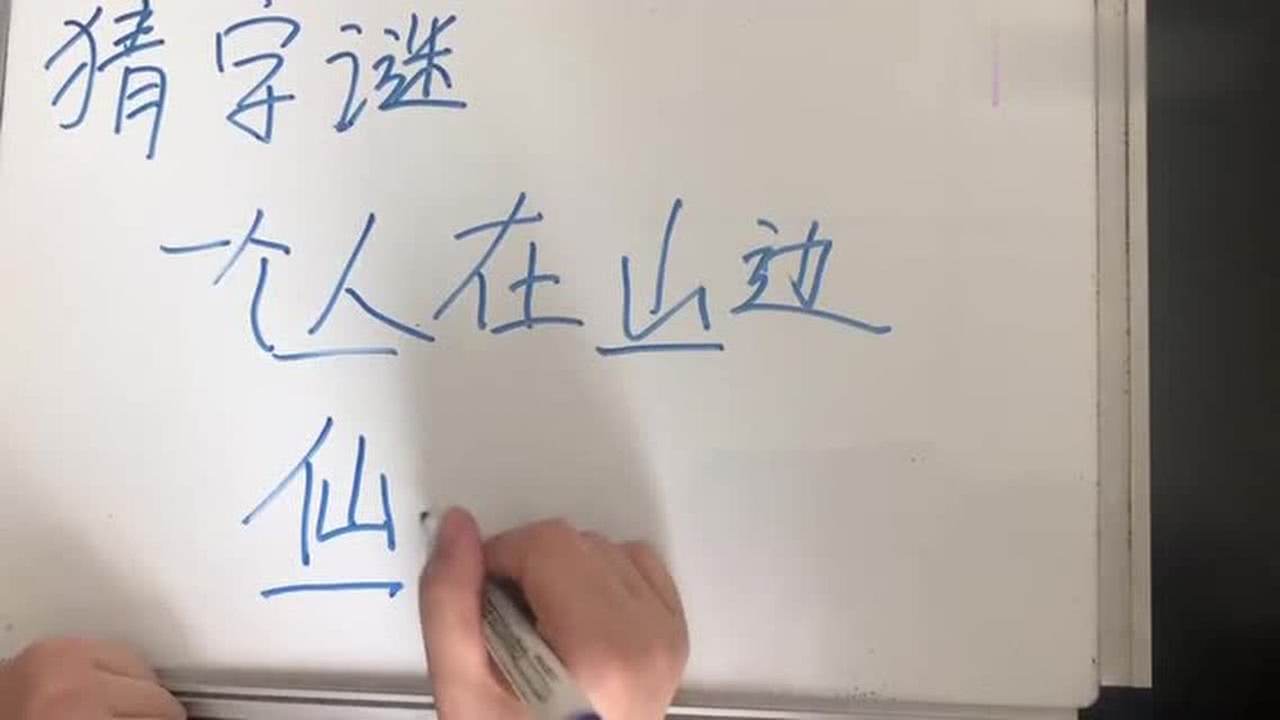 猜字谜
一个人在山边
仙